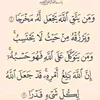 وَمَن يَتَّقِ اللَّهَ يَجْعَل لَّهُ مَخْرَجًا ۝٢
وَيَرْزُقْهُ مِنْ حَيْثُ لَا يَحْتَسِبُ
وَمَن يَتَوَكَّلْ عَلَى اللَّهِ فَهُوَ حَسْبُهُ
إِنَّ اللَّهَ بَالِغُ أَمْرِهِ قَدْ جَعَلَ اللَّهُ
لِكُلِّ شَيْءٍ قَدْرًا ۝٣